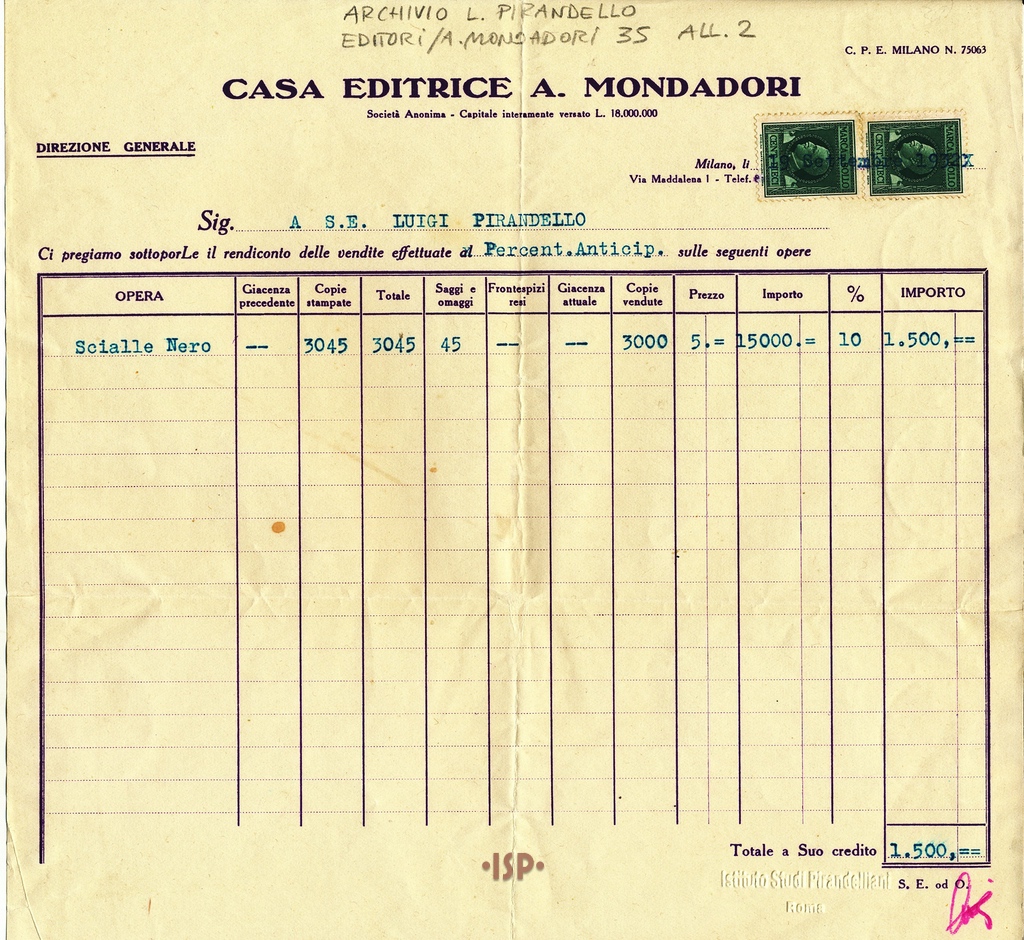 ARCHIVIO L. PIRANDELLO
EDITORI/A. MONDADORI 35 ALL. 2
C. P. E. MILANO N. 75063
CASA EDITRICE A. MONDADORI
Società Anonima - Capitale interamente versato L. 18.000.000
DIREZIONE GENERALE
Milano, li 19 Settembre 1932X
Via Maddalena 1 - Telef.
MARCA DA BOLLO
CENT. DIECI
MARCA DA BOLLO
CENT. DIECI
Sig. A S.E. LUIGI PIRANDELLO
Ci pregiamo sottoporLe il rendiconto delle vendite effettuate al Percent.Anticip. sulle seguenti opere
OPERA Giacenza precedente Copie stampate Totale Saggi e omaggi Frontespizi resi Giacenza attuale Copie vendute Prezzo Importo % IMPORTO
Scialle Nero -- 3045 3045 45 -- -- 3000 5.= 15000.= 10 1.500,==
Totale a Suo credito 1.500,==
•ISP•
Istituto Studi Pirandelliani
Roma
S. E. od O.